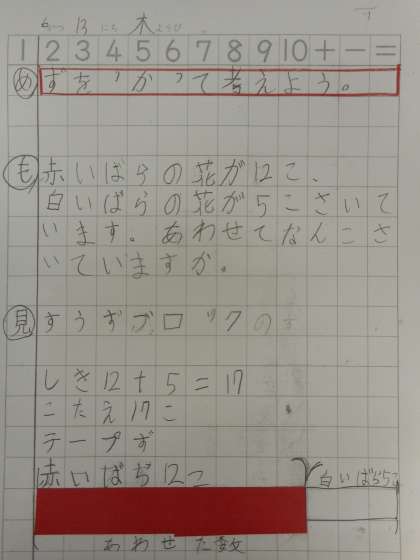 6がつ 13にち 木ようび
1 2 3 4 5 6 7 8 9 10 + - =
め ずをつかって考えよう。
も 赤いばらの花が12こ、
白いばらの花が5こさいて
います。あわせてなんこさ
いていますか。
見 すうずブロックの
しき12+5=17
こたえ17こ
テープず
赤いばら12こ 白いばら5こ
あわせた数